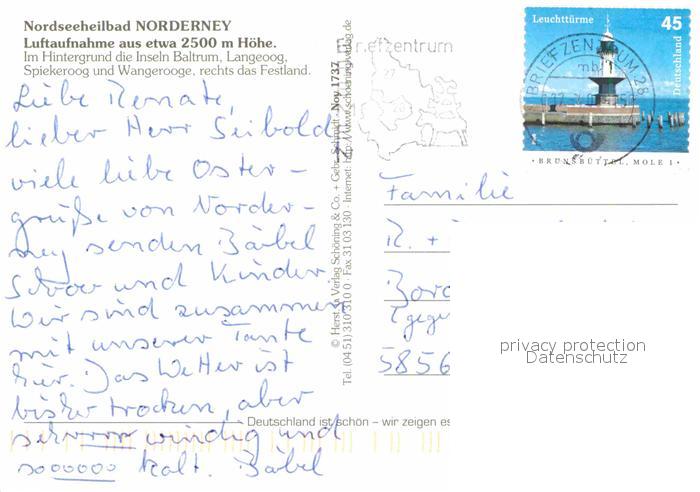 Nordseeheilbad NORDERNEY
Luftaufnahme aus etwa 2500 m Höhe.
Im Hintergrund die Inseln Baltrum, Langeoog,
Spiekeroog und Wangerooge, rechts das Festland.
Liebe Renate,
lieber Herr Seibold,
viele liebe Oster-
grüße von Norder-
ney senden Bärbel
und Kinder
Wir sind zusammen
mit unserer Tante
hier. Das Wetter ist
bisher trocken, aber
sehrrrr windig und
sooooooo kalt. Bärbel
© Herst. u. Verlag Schöning & Co. + Gebr. Schmidt · Noy 1737
Tel. (04 51) 310 310 0 · Fax 31 03 130 · Internet: http://www.schoening-verlag.de
Deutschland ist schön – wir zeigen es
Briefzentrum
BRIEFZENTRUM 28
Leuchttürme
45
Deutschland
· BRUNSBÜTTEL, MOLE 1 ·
Familie
R. +
5856
privacy protection
Datenschutz